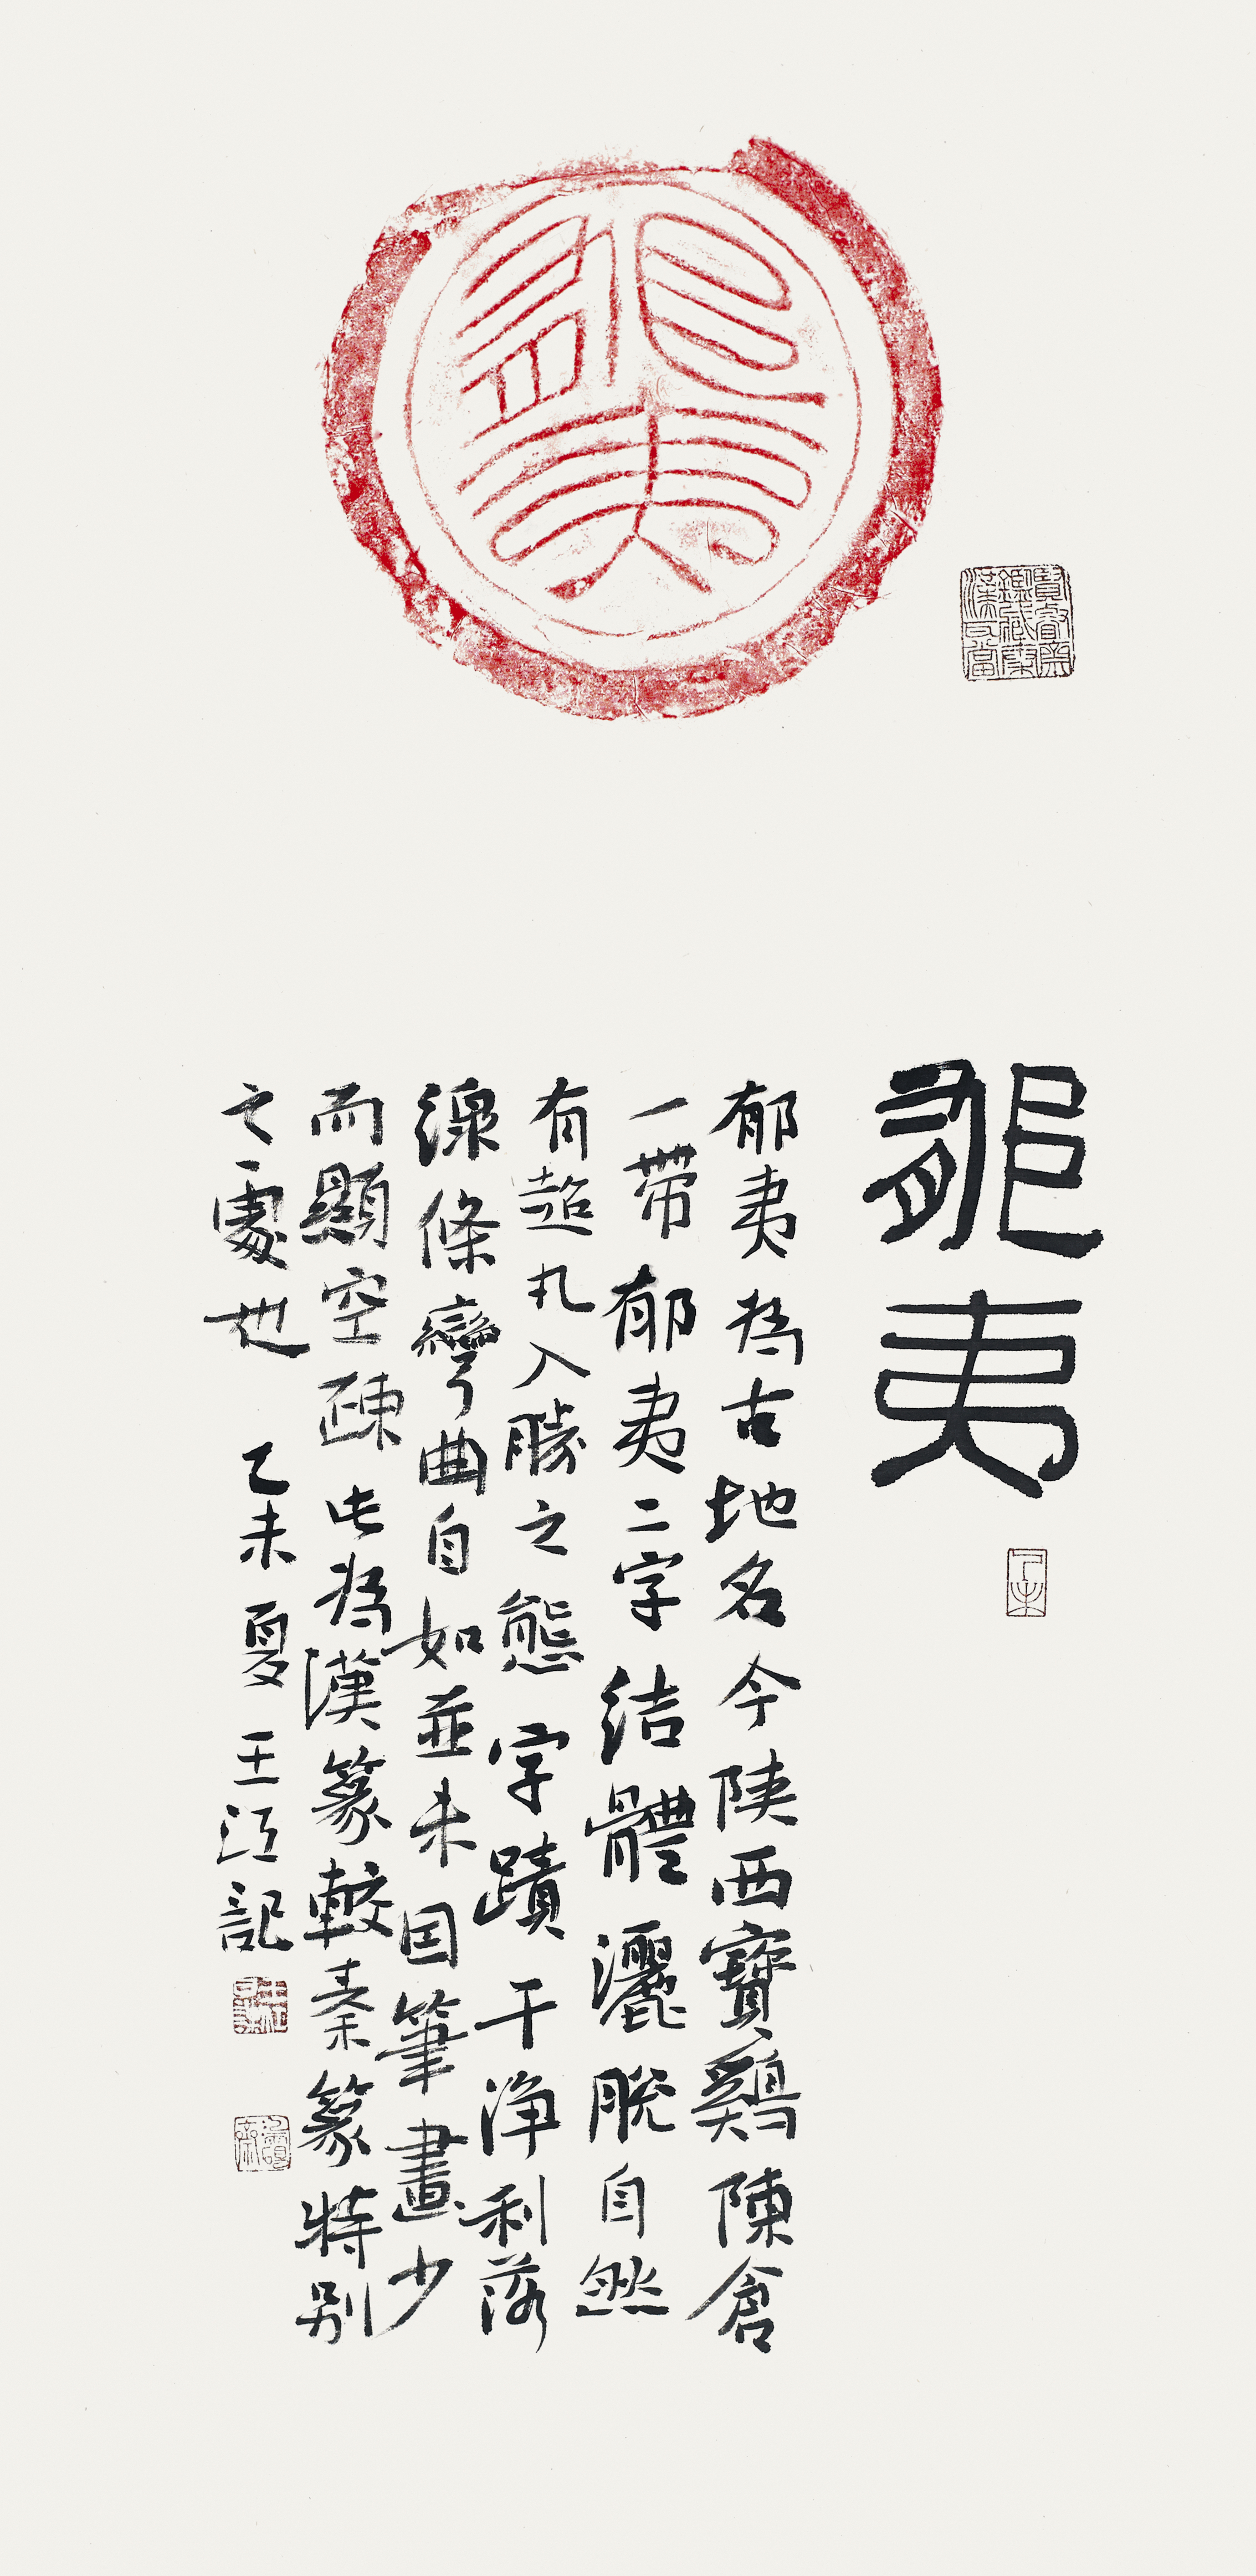 郁夷
郁夷
郁夷為古地名今陝西寶鷄陳倉
一帶郁夷二字結體灑脫自然
有超凡入勝之態字蹟干淨利落
線條彎曲自如並未因筆畫少
而顯空疎此為漢篆較秦篆特別
之處也 乙未夏 王江記